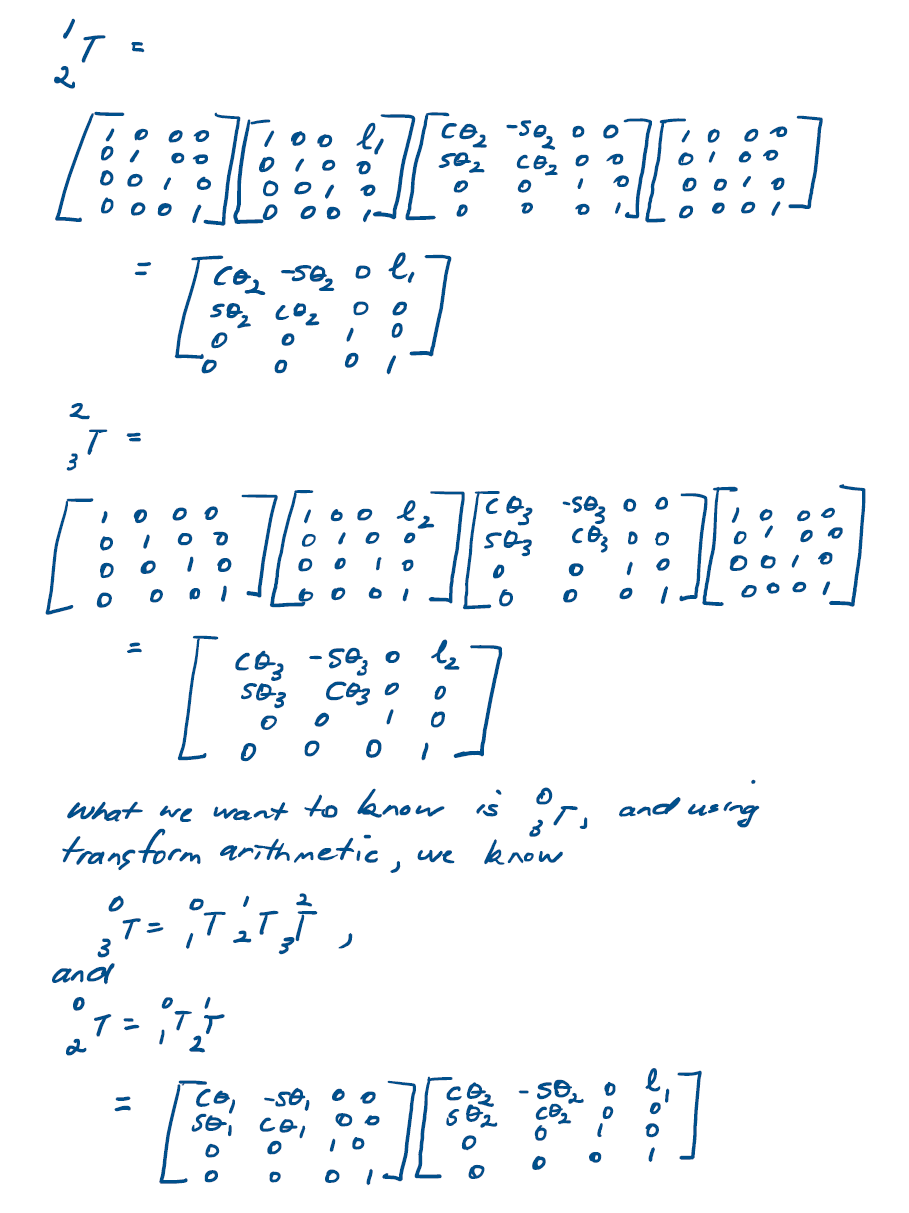 ¹₂T =
[1 0 0 0; 0 1 0 0; 0 0 1 0; 0 0 0 1] [1 0 0 l₁; 0 1 0 0; 0 0 1 0; 0 0 0 1] [cθ₂ -sθ₂ 0 0; sθ₂ cθ₂ 0 0; 0 0 1 0; 0 0 0 1] [1 0 0 0; 0 1 0 0; 0 0 1 0; 0 0 0 1]
= [cθ₂ -sθ₂ 0 l₁; sθ₂ cθ₂ 0 0; 0 0 1 0; 0 0 0 1]
²₃T =
[1 0 0 0; 0 1 0 0; 0 0 1 0; 0 0 0 1] [1 0 0 l₂; 0 1 0 0; 0 0 1 0; 0 0 0 1] [cθ₃ -sθ₃ 0 0; sθ₃ cθ₃ 0 0; 0 0 1 0; 0 0 0 1] [1 0 0 0; 0 1 0 0; 0 0 1 0; 0 0 0 1]
= [cθ₃ -sθ₃ 0 l₂; sθ₃ cθ₃ 0 0; 0 0 1 0; 0 0 0 1]
what we want to know is ⁰₃T, and using
transform arithmetic, we know
⁰₃T = ⁰₁T ¹₂T ²₃T ,
and
⁰₂T = ⁰₁T ¹₂T
= [cθ₁ -sθ₁ 0 0; sθ₁ cθ₁ 0 0; 0 0 1 0; 0 0 0 1] [cθ₂ -sθ₂ 0 l₁; sθ₂ cθ₂ 0 0; 0 0 1 0; 0 0 0 1]